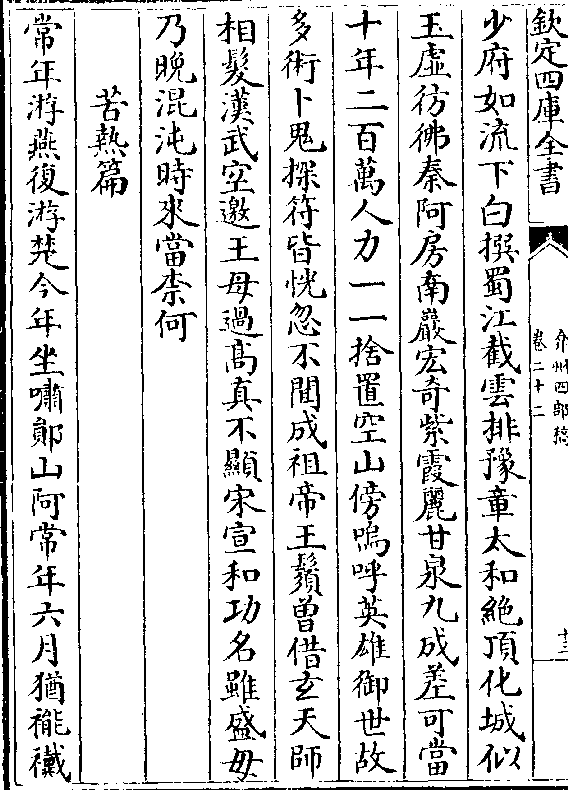 欽定四庫全書
弇州四部稿
卷二十二
十三
少府如流下白撰蜀江截雲排豫章太和絶頂化城似
玉虛彷彿秦阿房南巖宏奇紫霞麗甘泉九成差可當
十年二百萬人力一一捨置空山傍嗚呼英雄御世故
多術卜鬼探符皆恍忽不聞成祖帝王鬚曽借𤣥天師
相髮漢武空邀王母過髙真不顯宋宣和功名雖盛毋
乃晚混沌時來當柰何
苦熱篇
常年游燕復游楚今年坐嘯鄖山阿常年六月猶褦襶